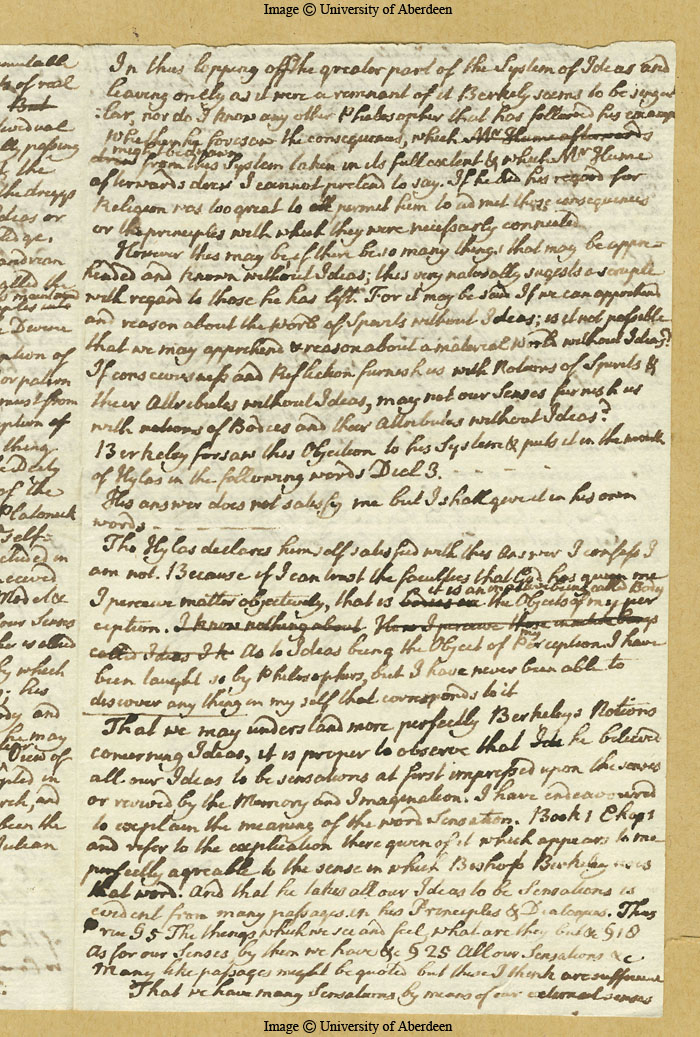 Image © University of Aberdeen
mutable
of real
But
dividual
ll, passing
t the
the dregss
deas or
ledge,
called the
e Devine
ption of
or patern
must from
eption of
thing
e Deity
of the
Platonick
Self=
cluded in
eceived
Model &
our Senses
by which
his
he may
View of
pted in
rch, and
been the
Julian
In thus lopping off the greater part of the System of Ideas and
leaving onely as it were a remnant of it Berkely seems to be singu
=lar, nor do I know any other Philosopher that has followed his example
Whether he foresaw the consequences, which Mr Hume afterwards
must be drawn
drew from this System taken in its full extent & which Mr Hume
afterwards drew I cannot pretend to say. If he did his regard for
Religion was too great to all permit him to admit those consequences
or the principles with which they were necessarly connected
However this may be if there be so many things that may be appre=
hended and known without Ideas; this very naturally sugests a scruple
with regard to those he has left. For it may be said If we can apprehend
and reason about the World of Spirits without Ideas; is it not possible
that we may apprehend & reason about a material World without Ideas?
If consciousness and Reflection furnish us with Notions of Spirits &
their Attributes without Ideas, may not our Senses furnish us
with notions of Bodies and their Attributes without Ideas?
Berkeley forsaw this Objection to his System & puts it in the mouth
of Hylas in the following words Dial 3.
His answer does not satisfy me but I shall give it in his own
words
Tho Hylas declares himself satisfied with this Answer I confess I
am not. Because if I can trust the faculties that God has given me
it is an being called Body
I perceive matter objectively, that is bodies are the Objects of my per
ception. I know nothing about, How I perceive those
my
called Ideas I As to Ideas being the Object of Perception. I have
been taught so by Philosophers, but I have never been able to
discover any thing in my self that corresponds to it
That we may understand more perfectly Berkeleys Notions
concerning Ideas, it is proper to observe that Ide he believed
all our Ideas to be sensations at first impressed upon the senses
or revived by the Memory and Imagination. I have endeavoured
to explain the meaning of the word Sensation. Book 1 Chap 1
and refer to the explication there given of it which appears to me
perfectly agreable to the sense in which Bishop Berkeley uses
that word. And that he takes all our Ideas to be Sensations is
evident from many passages in his Principles & Dialogues. Thus
Prin § 5 The things which we see and feel what are they but &c § 18
As for our Senses by them we have &c § 25 All our Sensations &c
Many like passages might be quoted but these I think are sufficient
That we have many Sensations by means of our external senses
Image © University of Aberdeen